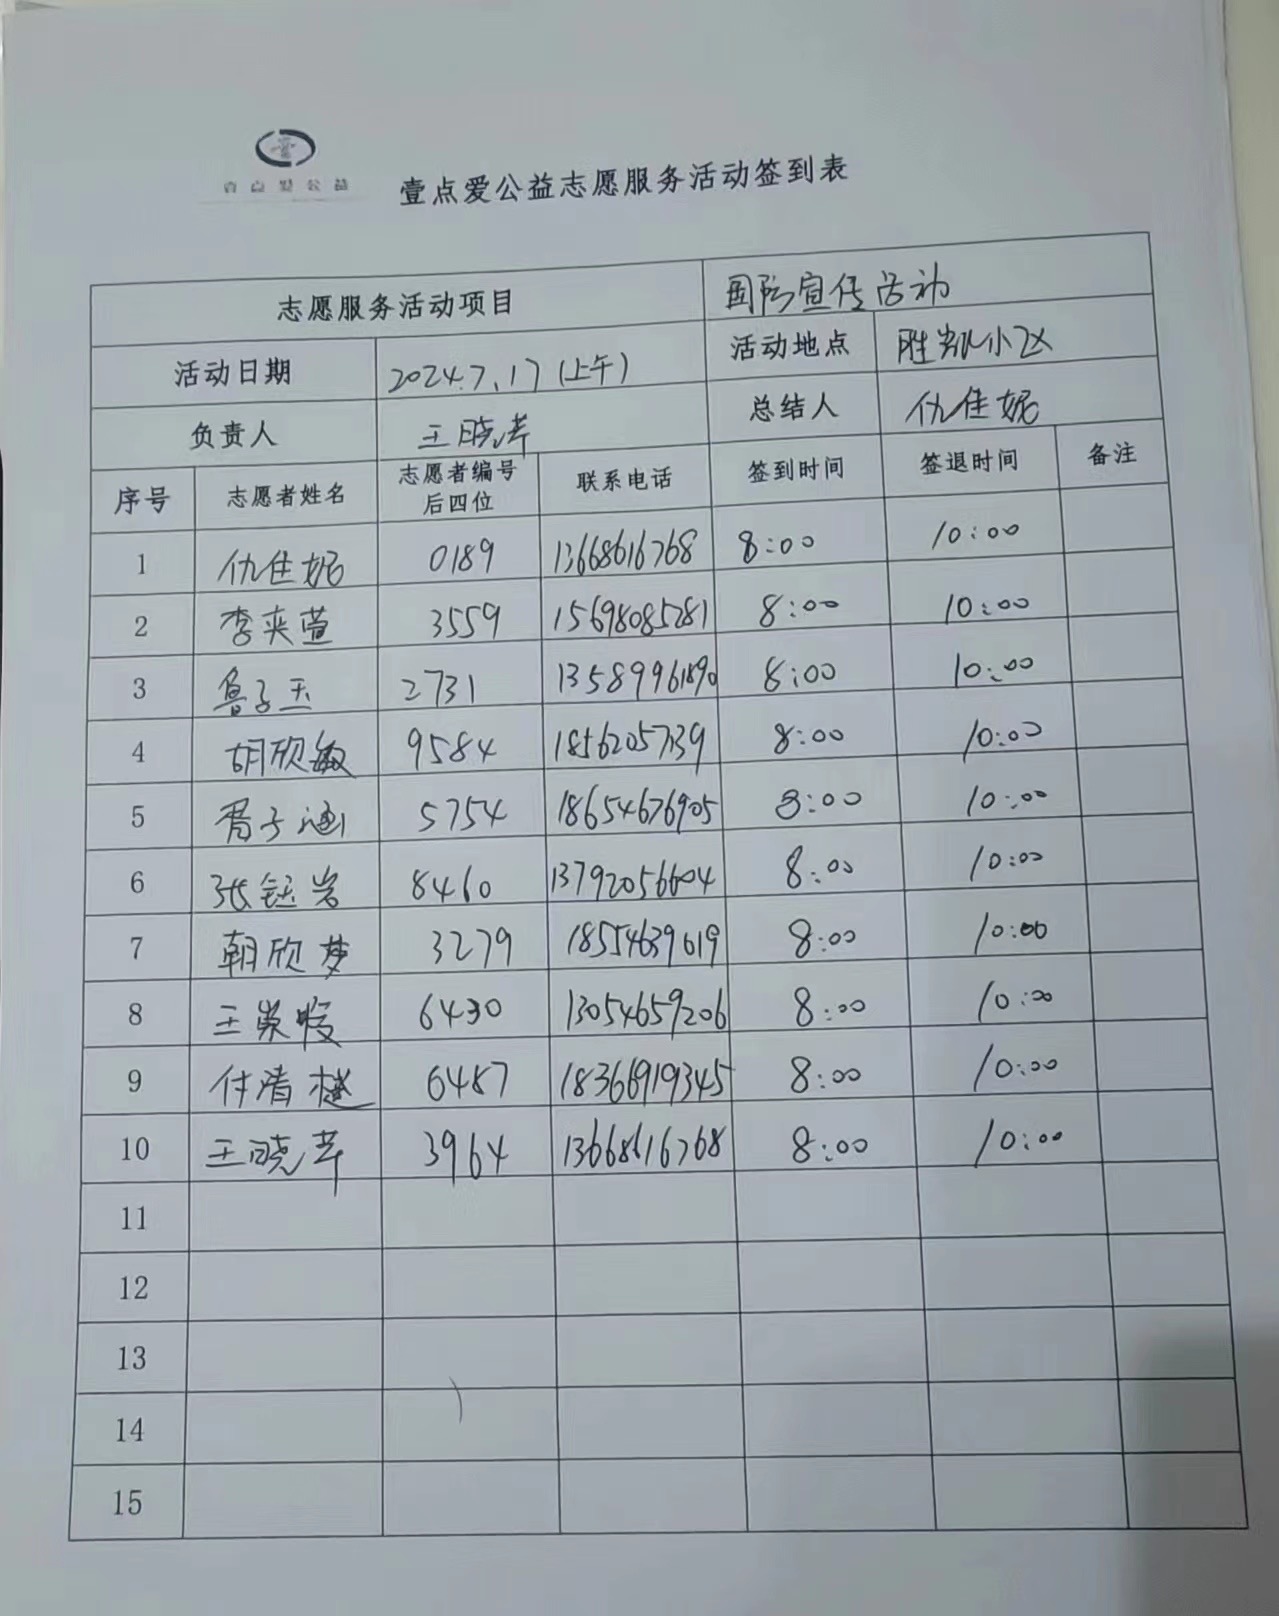 壹点爱公益
壹点爱公益志愿服务活动签到表
志愿服务活动项目 国防宣传活动
活动日期 2024.7.17(上午) 活动地点 胜凯小区
负责人 王晓芹 总结人 仇佳妮
序号 志愿者姓名 志愿者编号后四位 联系电话 签到时间 签退时间 备注
1 仇佳妮 0189 13668616768 8:00 10:00
2 李奕萱 3559 15698085281 8:00 10:00
3 鲁子玉 2731 13589961890 8:00 10:00
4 胡欣敏 9584 8:00 10:00
5 子涵 5754 18654676905 8:00 10:00
6 张钰岩 8460 13792056604 8:00 10:00
7 朝欣梦 3279 18554639619 8:00 10:00
8 王 6430 13054659206 8:00 10:00
9 付清 6487 18366919345 8:00 10:00
10 王晓芹 3964 13668616768 8:00 10:00
11
12
13
14
15